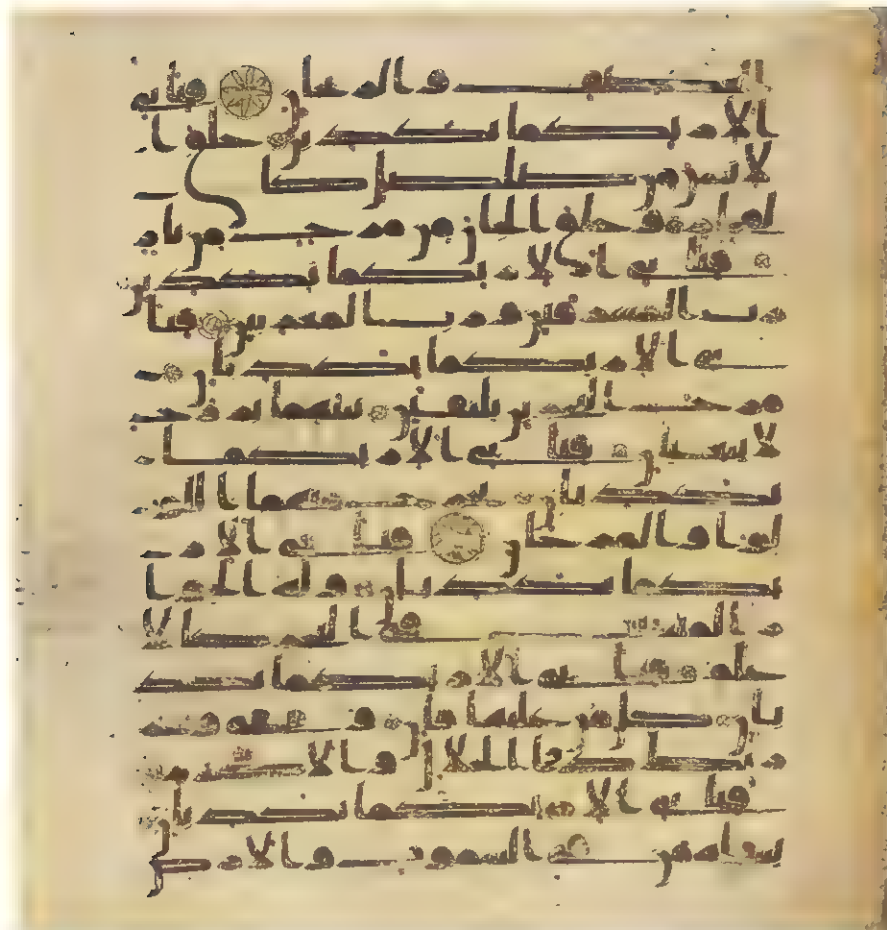 العصف والريحان فباي
الاء ربكما تكذبان خلق ا
لانسن من صلصل كا
لفخار وخلق الجان من مرج من نار
فباي الاء ربكما تكذبان
رب المشرقين ورب المغربين فبا
ي الاء ربكما تكذبان
مرج البحرين يلتقين بينهما برزخ
لا يبغيان فباي الاء ربكما
تكذبان يخرج منهما اللو
لوا والمرجان فباي الاء ر
بكما تكذبان وله الجوا
ر المنشت في البحر كالا
علم فباي الاء ربكما تكذ
بان كل من عليها فان ويبقى وجه
ربك ذو الجلل والاكرام
فباي الاء ربكما تكذبان
يسله من في السموت والارض كل